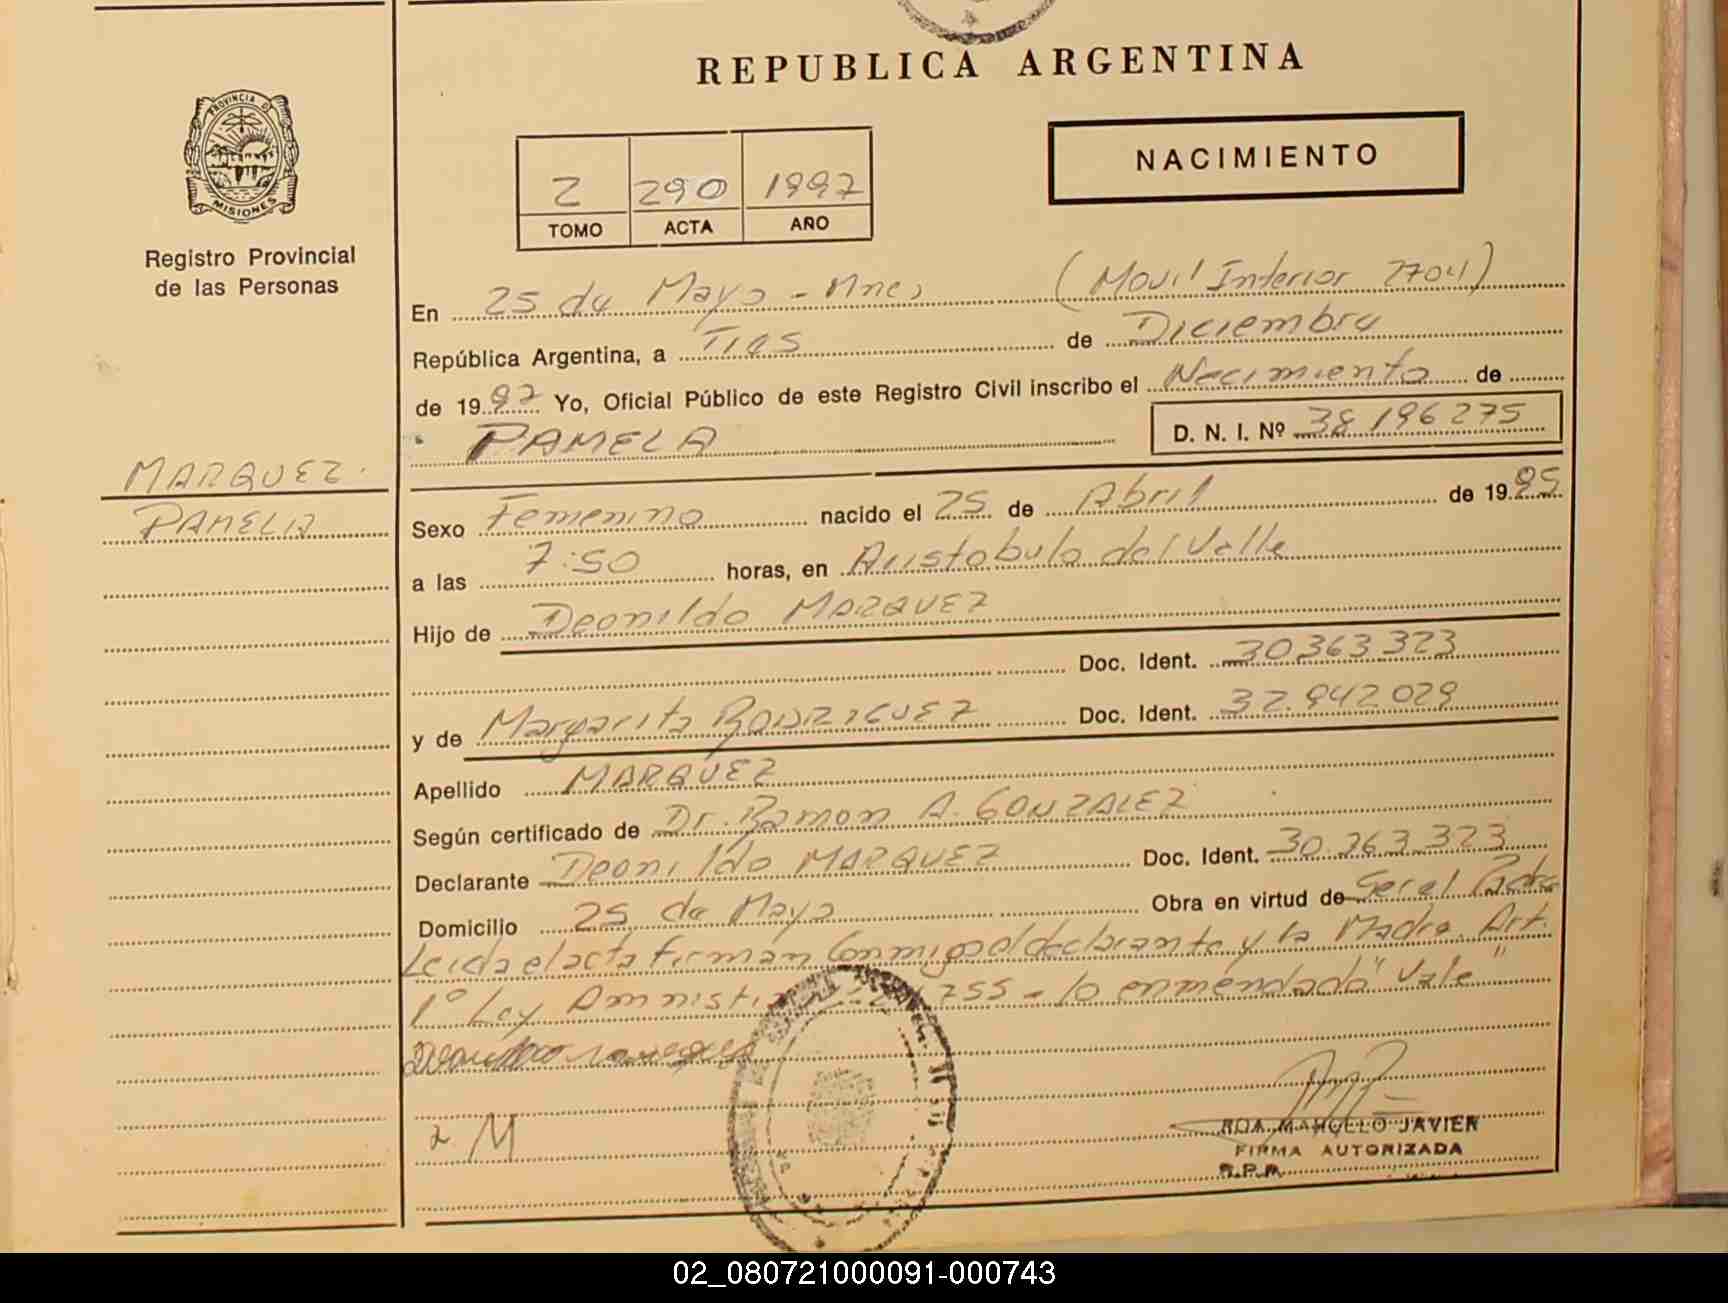 REPUBLICA ARGENTINA
NACIMIENTO
2 290 1997
TOMO ACTA AÑO
PROVINCIA DE
MISIONES
Registro Provincial
de las Personas
En 25 de Mayo - Mnes (Movil Interior 2704)
República Argentina, a Tres de Diciembre
de 1997 Yo, Oficial Público de este Registro Civil inscribo el Nacimiento de
PAMELA D. N. I. Nº 38 196 275
MARQUEZ.
PAMELA
Sexo Femenino nacido el 25 de Abril de 1995
a las 7:50 horas, en Aristobulo del Valle
Hijo de Deonildo MARQUEZ
Doc. Ident. 30 363 323
y de Margarita RODRIGUEZ Doc. Ident. 32.942 029
Apellido MARQUEZ
Según certificado de Dr. Ramon A. GONZALEZ
Declarante Deonildo MARQUEZ Doc. Ident. 30.363.323
Domicilio 25 de Mayo Obra en virtud de Padre
Leida el acta firman Conmigo el declarante y la Madre. Art.
1º Ley Amnistia 755 - lo enmendado "Vale"
M
ROA MARCELO JAVIER
FIRMA AUTORIZADA
R.P.P.
02_080721000091-000743